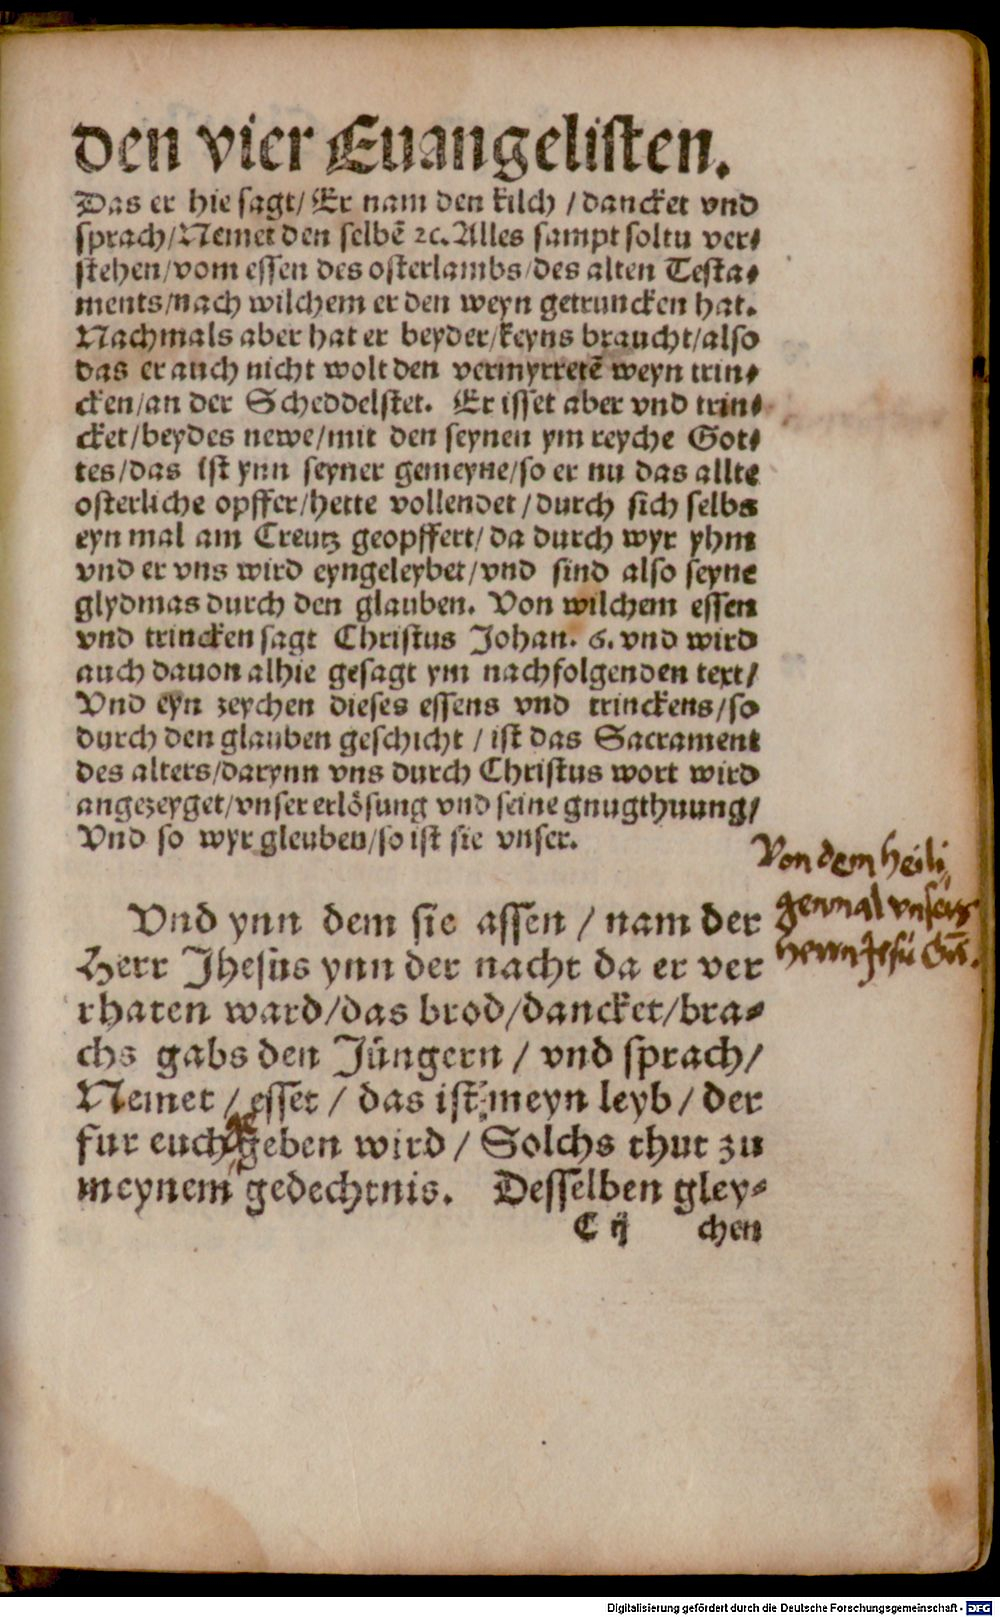 den vier Euangelisten.
Das er hie sagt/ Er nam den kilch / dancket vnd
sprach/Nemet den selbē ꝛc. Alles sampt soltu ver⸗
stehen/vom essen des osterlambs/des alten Testa⸗
ments/nach wilchem er den weyn getruncken hat.
Nachmals aber hat er beyder/keyns braucht/also
das er auch nicht wolt den vermyrretē weyn trin⸗
cken/an der Scheddelstet. Er isset aber vnd trin⸗
cket/beydes newe/mit den seynen ym reyche Got⸗
tes/das ist ynn seyner gemeyne/so er nu das allte
osterliche opffer/hette vollendet/durch sich selbs
eyn mal am Creutz geopffert/da durch wyr yhm
vnd er vns wird eyngeleybet/vnd sind also seyne
glydmas durch den glauben. Von wilchem essen
vnd trincken sagt Christus Johan. 6. vnd wird
auch dauon alhie gesagt ym nachfolgenden text/
Vnd eyn zeychen dieses essens vnd trinckens/so
durch den glauben geschicht / ist das Sacrament
des alters/darynn vns durch Christus wort wird
angezeyget/vnser erlösung vnd seine gnugthuung/
Vnd so wyr gleuben/so ist sie vnser.
Von dem heili
genmal vnsers
herrn Jesü
Vnd ynn dem sie assen / nam der
Herr Jhesus ynn der nacht da er ver
rhaten ward/das brod/dancket/bra⸗
chs gabs den Jüngern / vnd sprach/
Nemet / esset / das ist meyn leyb / der
fur euch ge geben wird / Solchs thut zu
meynem gedechtnis. Desselben gley⸗
C ij chen
Digitalisierung gefördert durch die Deutsche Forschungsgemeinschaft - DFG